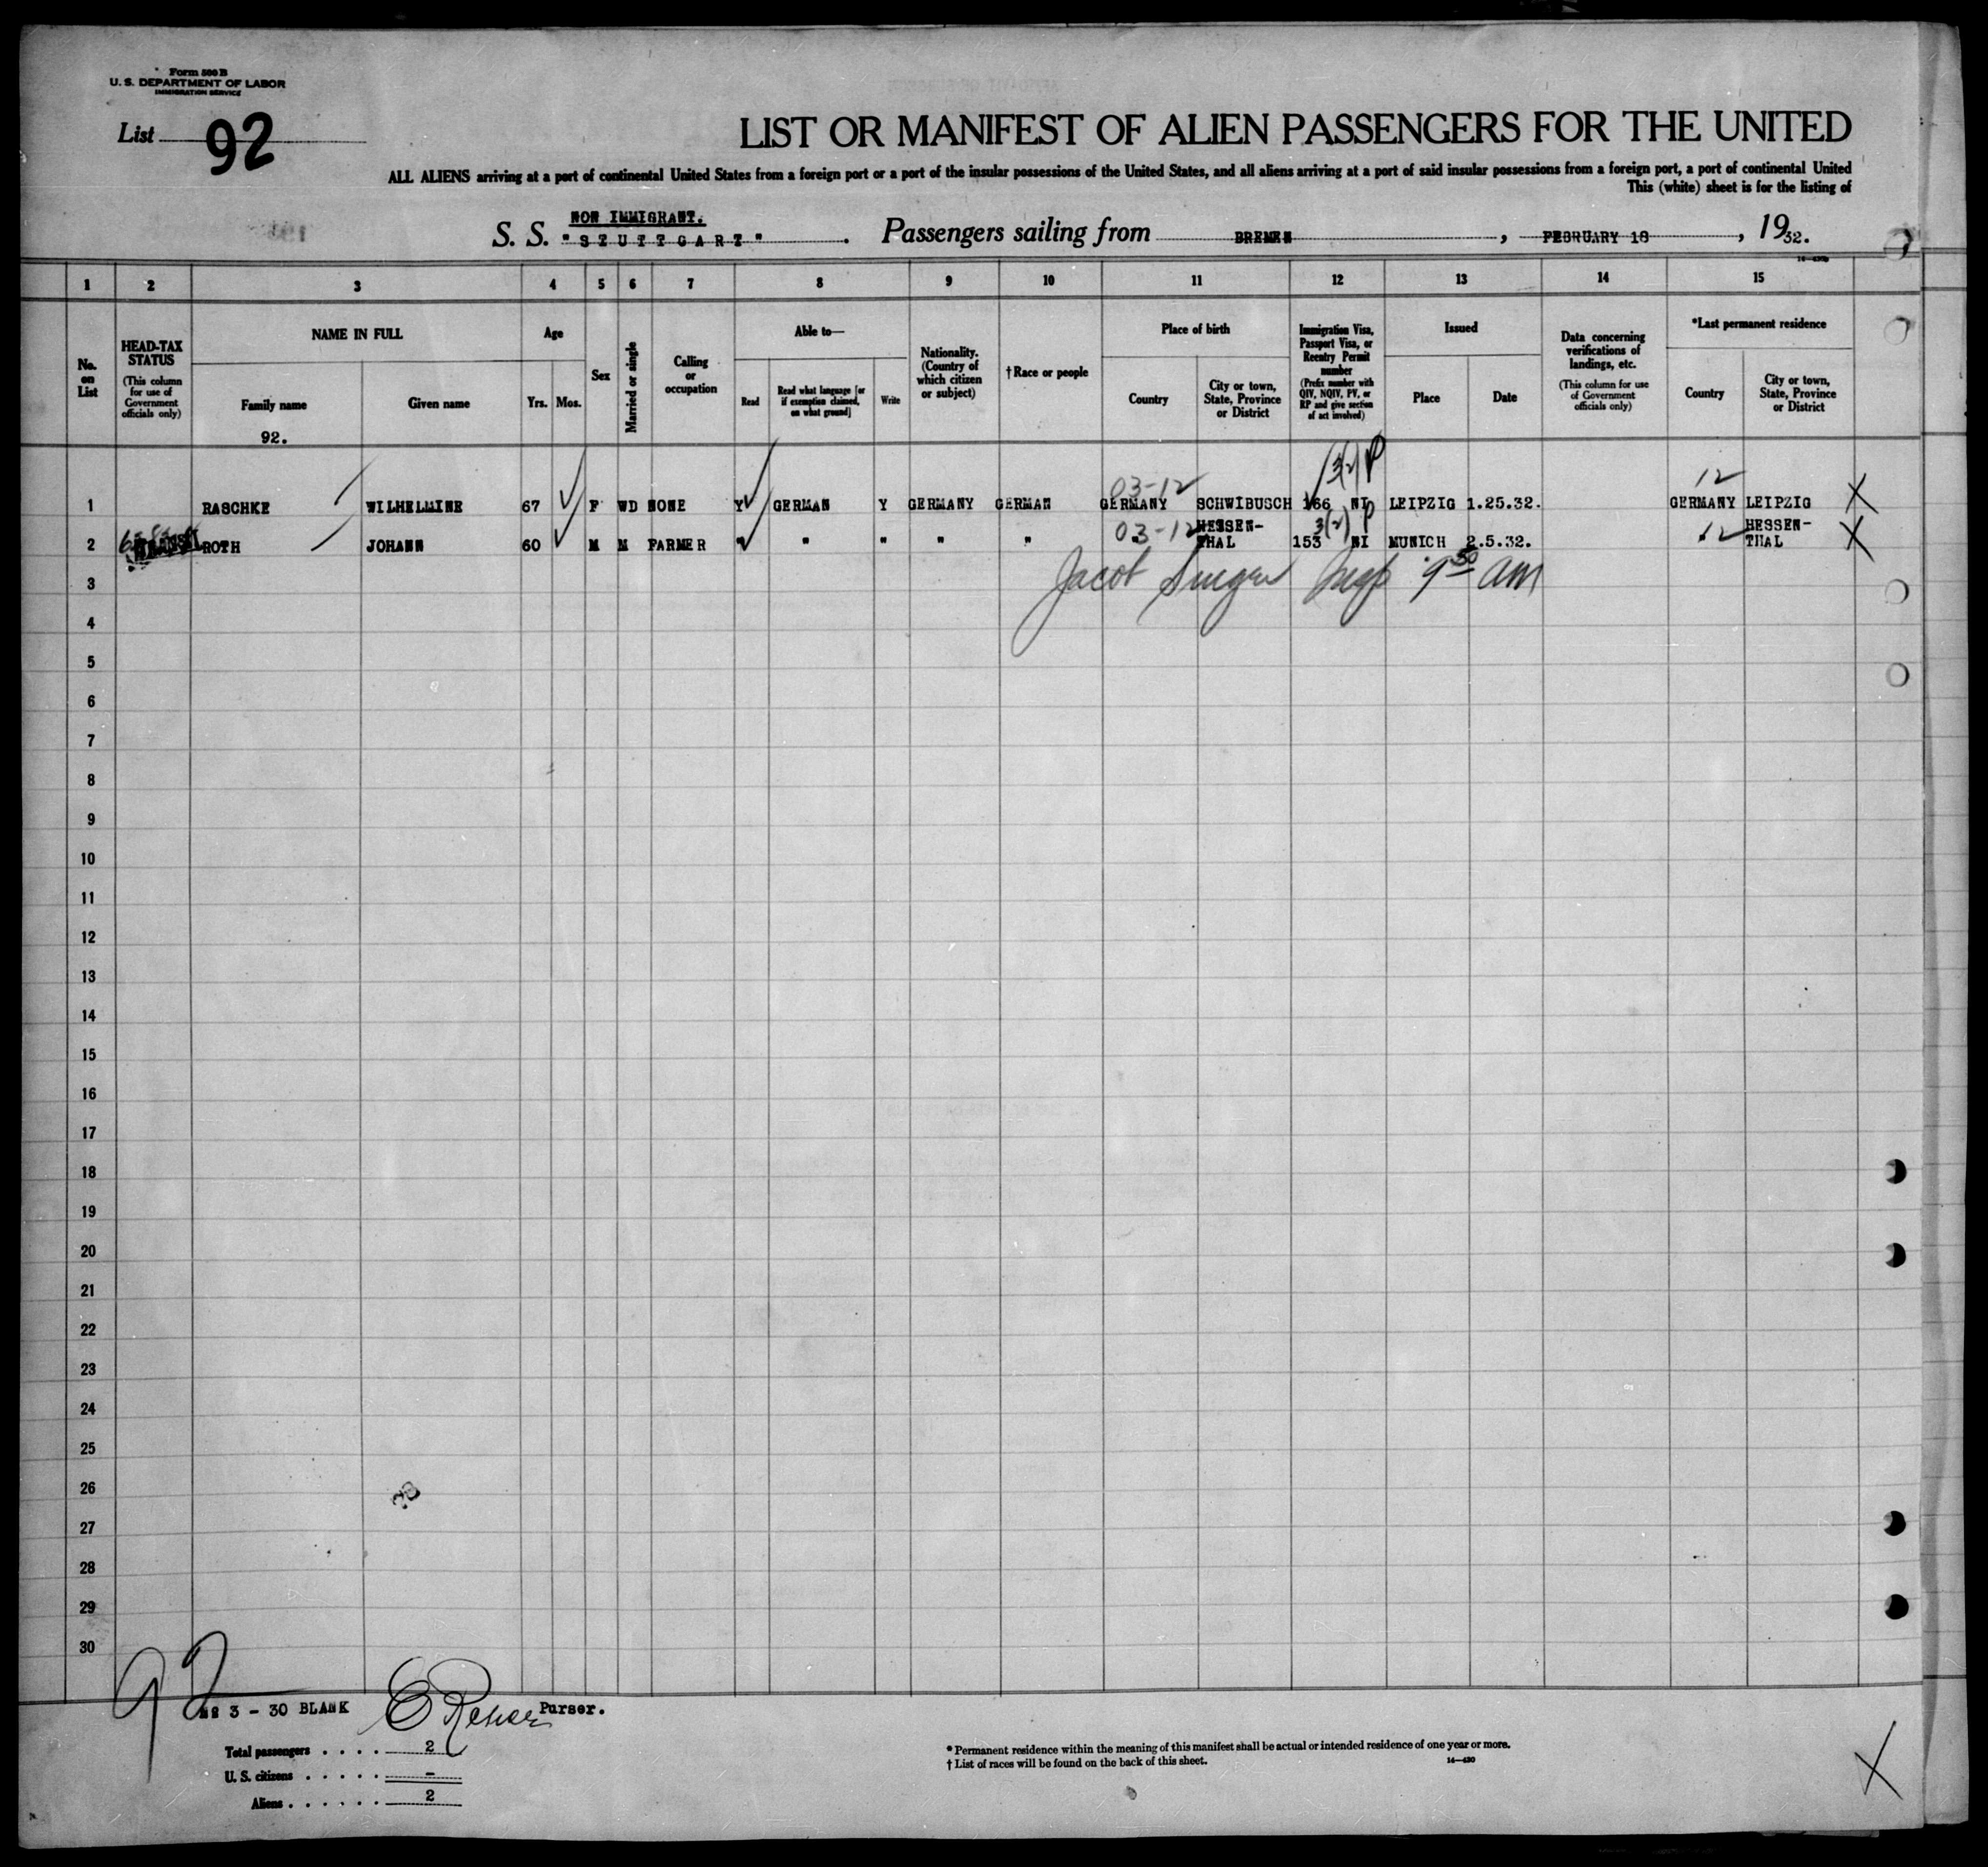 Form 500 B
U. S. DEPARTMENT OF LABOR
IMMIGRATION SERVICE
List 92
LIST OR MANIFEST OF ALIEN PASSENGERS FOR THE UNITED
ALL ALIENS arriving at a port of continental United States from a foreign port or a port of the insular possessions of the United States, and all aliens arriving at a port of said insular possessions from a foreign port, a port of continental United
This (white) sheet is for the listing of
NON IMMIGRANT.
S. S. "STUTTGART" . Passengers sailing from BREMEN , FEBRUARY 18 , 1932.
1 2 3 4 5 6 7 8 9 10 11 12 13 14 15
No. on List
HEAD-TAX STATUS
(This column for use of Government officials only)
NAME IN FULL
Family name
92.
Given name
Age
Yrs. Mos.
Sex
Married or single
Calling or occupation
Able to—
Read
Read what language [or if exemption claimed, on what ground]
Write
Nationality. (Country of which citizen or subject)
† Race or people
Place of birth
Country
City or town, State, Province or District
Immigration Visa, Passport Visa, or Reentry Permit number
(Prefix number with QIV, NQIV, PV, or RP and give section of act involved)
Issued
Place
Date
Data concerning verifications of landings, etc.
(This column for use of Government officials only)
*Last permanent residence
Country
City or town, State, Province or District
03-12 3(2) P 12
1 RASCHKE WILHELMINE 67 F WD NONE Y GERMAN Y GERMANY GERMAN GERMANY SCHWIBUSCH 166 NI LEIPZIG 1.25.32. GERMANY LEIPZIG X
03-12 HESSEN- 3(2) P 12 HESSEN-
2 ROTH JOHANN 60 M M FARMER " " " " " " THAL 153 NI MUNICH 2.5.32. " THAL X
Jacob Singer Insp 9 30 am
3
4
5
6
7
8
9
10
11
12
13
14
15
16
17
18
19
20
21
22
23
24
25
26
27
28
29
30
92
3 - 30 BLANK Purser.
Total passengers . . . . 2
U. S. citizens . . . . . -
Aliens . . . . . . 2
* Permanent residence within the meaning of this manifest shall be actual or intended residence of one year or more.
† List of races will be found on the back of this sheet.
14—430
X